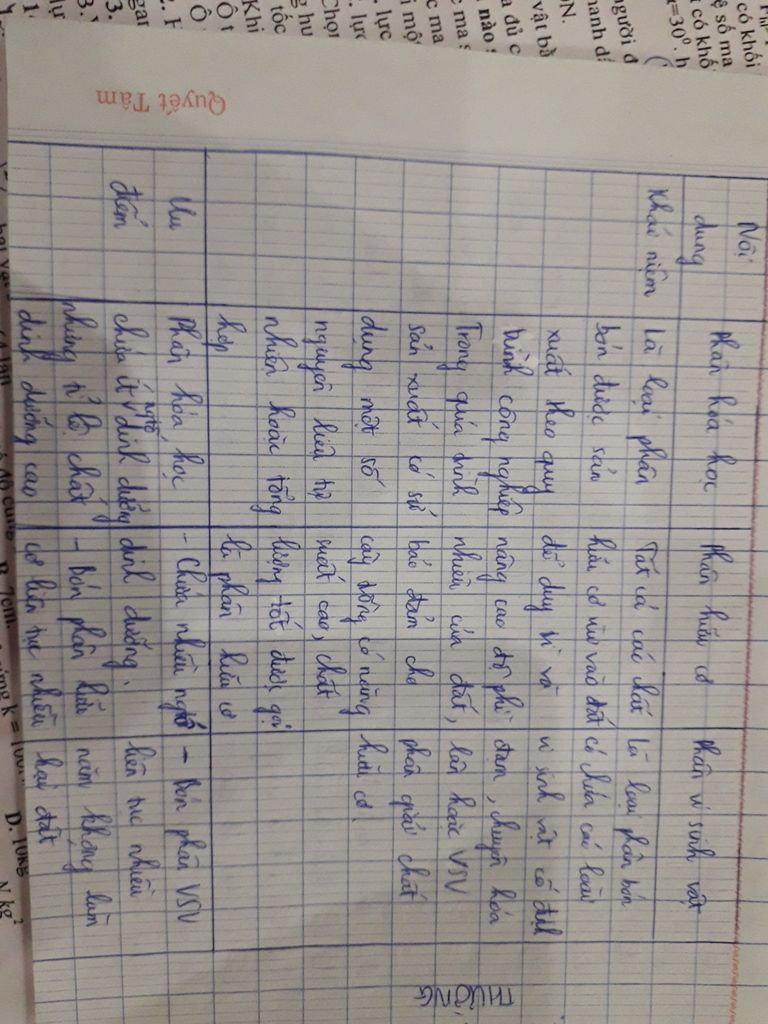 Quyết Tâm
Nội
dung
Phân hóa học
Phân hữu cơ
Phân vi sinh vật
Khái niệm
Là loại phân
bón được sản
xuất theo quy
trình công nghiệp
Trong quá trình
sản xuất có sử
dụng một số
nguyên liệu tự
nhiên hoặc tổng
hợp
Tất cả các chất
hữu cơ vùi vào đất
để duy trì và
nâng cao độ phì
nhiêu của đất,
bảo đảm cho
cây trồng có năng
suất cao, chất
lượng tốt được gọi
là phân hữu cơ
Là loại phân bón
có chứa các loài
vi sinh vật cố định
đạm, chuyển hóa
lân hoặc VSV
phân giải chất
hữu cơ.
Ưu
điểm
Phân hóa học
chứa ít nguyên tố dinh dưỡng
nhưng tỉ lệ chất
dinh dưỡng cao
- Chứa nhiều nguyên tố
dinh dưỡng.
- Bón phân hữu
cơ liên tục nhiều
- Bón phân VSV
liên tục nhiều
năm không làm
hại đất
THƯỜNG